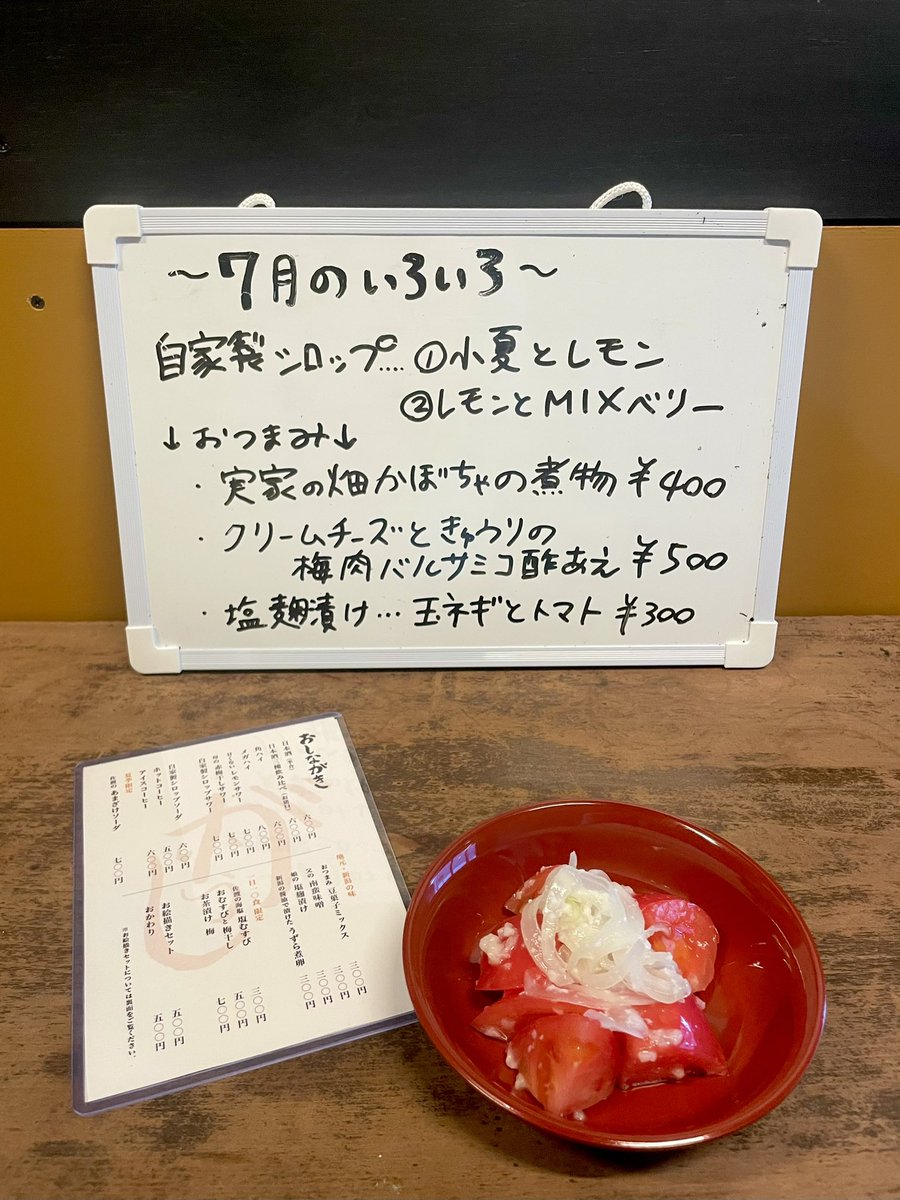 ～7月のいろいろ～
自家製シロップ.... ①小夏とレモン
②レモンとMIXベリー
↓おつまみ↓
・実家の畑かぼちゃの煮物 ¥400
・クリームチーズときゅウリの
梅肉バルサミコ酢あえ ¥500
・塩麹漬け… 玉ネギとトマト ¥300
おしながき
日本酒
日本酒三種飲み比べ 六〇〇円
角ハイ 六〇〇円
メガハイ 八〇〇円
レモンサワー 七〇〇円
母の赤梅干しサワー 七〇〇円
自家製シロップサワー 六〇〇円
自家製シロップソーダ 六〇〇円
ホットコーヒー 五〇〇円
アイスコーヒー 六〇〇円
夏季限定
あまざけソーダ 七〇〇円
地元・新潟の味
おつまみ 豆菓子ミックス 三〇〇円
父の 南蛮味噌 三〇〇円
娘の 塩麹漬け 三〇〇円
新潟の醤油で漬けた うずら煮卵 三〇〇円
佐渡の海塩 塩むすび 三〇〇円
おむすびと梅干し 五〇〇円
お茶漬け 梅 七〇〇円
お絵描きセット 五〇〇円
おかわり 五〇〇円
※お絵描きセットについては裏面をご覧ください。